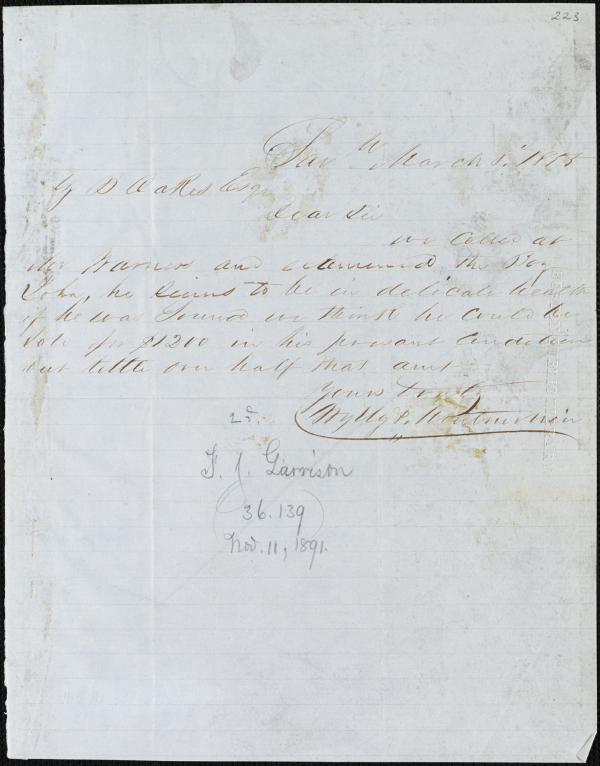 223
Sav h March 3d 185
Z B Oakes Esq
Dear Sir
we called at
Mr Warners and examined the Boy
John, he seems to be in delicate health
if he was Sound we think he could be
Sold for $1200 in his present Condition
but little over half that amt
Yours Truly
Wylly & Montmollin
25.
F. J. Garrison
36.139
Nov. 11, 1891.